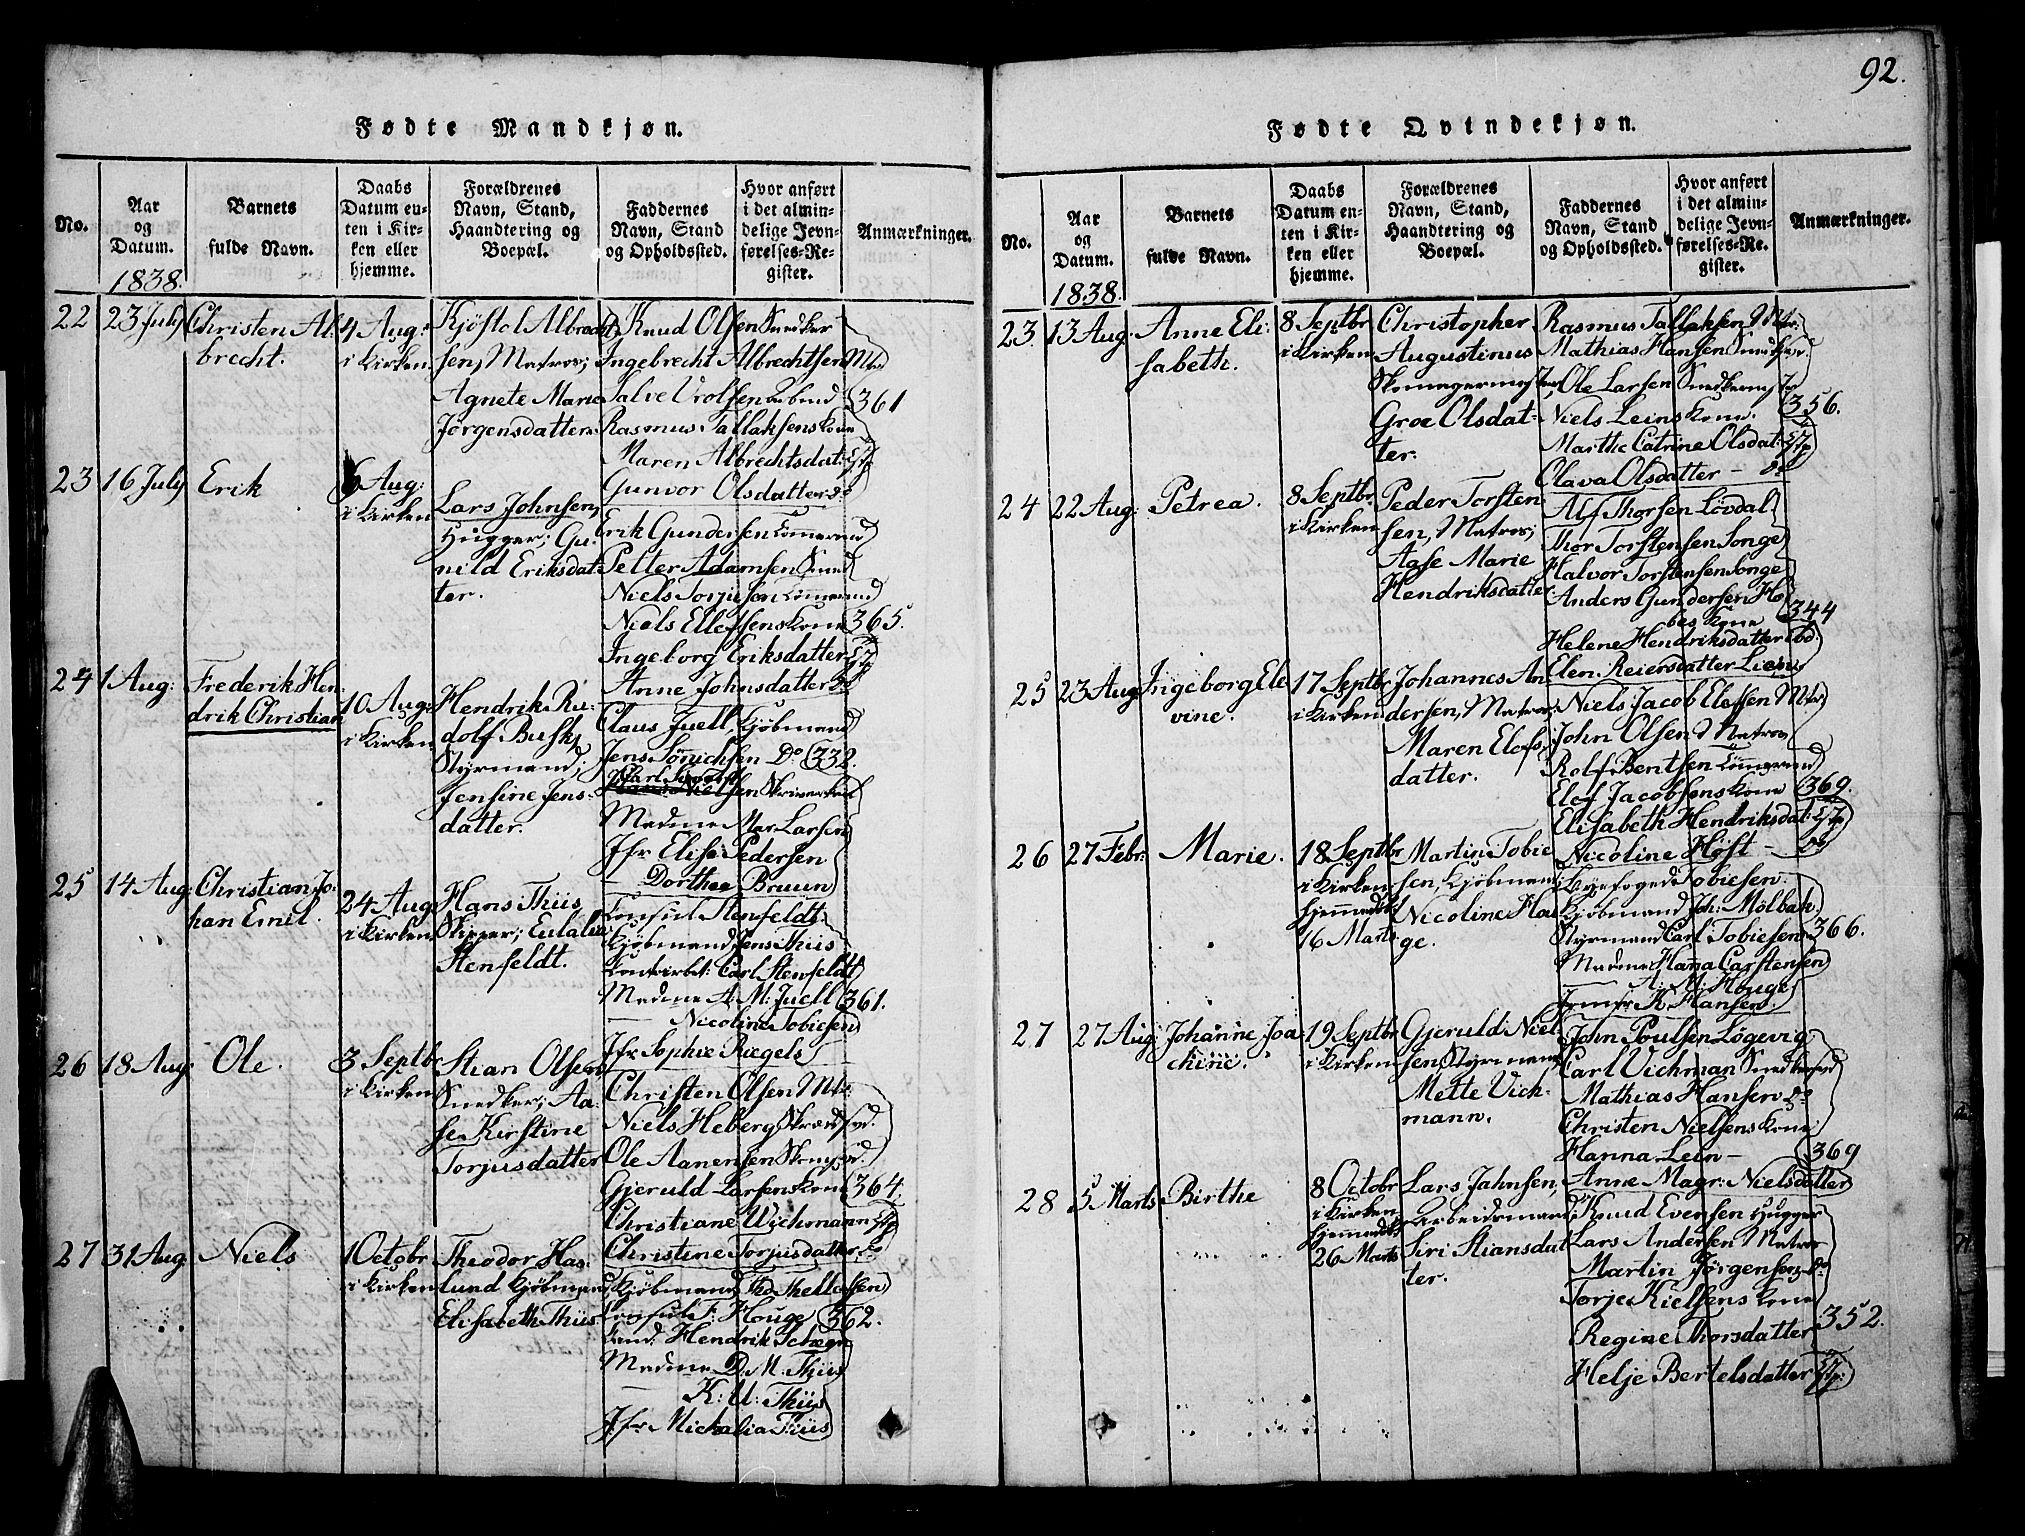 92.
Fødte Mandkjøn.
No.
Aar
og
Datum.
1838.
Barnets
fulde Navn.
Daabs
Datum en-
ten i Kir-
ken eller
hjemme.
Forældrenes
Navn, Stand,
Haandtering og
Boepæl.
Faddernes
Navn, Stand
og Opholdssted.
Hvor anført
i det almin-
delige Jevn-
førelses-Re-
gister.
Anmærkninger.
22
23 July
Christen Al-
brecht.
4 Aug:
i Kirken
Kjøstol Albrecht-
sen, Matros;
Agnete Marie
Jørgensdatter
Knud Olsen Snedker
Ingebrecht Albrechtsen Mtr
Salve Vrolsen
Rasmus Tallaksens Kone
Maren Albrechtsdat:
Gunvor Olsdatter do
361
23
16 July
Erik
6 Aug:
i Kirken
Lars Johnsen,
Hugger; Gu-
nild Eriksdat-
ter.
Erik Gundersen Tømmermd
Petter Adamsen Smed
Niels Torjusen Tømmermd
Niels Ellefsens Kone
Ingeborg Eriksdatter
Anne Johnsdatter do
365.
24
1 Aug:
Frederik Hen-
drik Christian
10 Aug:
i Kirken
Hendrik Ru-
dolf Busk,
Styrmand;
Jensine Jens-
datter.
Claus Juell, Kjøbmand
Jens Sønichsen Do
Nielsen
Madme Mar. Larsen
Jfr Elise Pedersen
— Dorthea Bruun
332.
25
14 Aug:
Christian Jo-
han Emil.
24 Aug:
i Kirken
Hans Thiis
Skipper; Eulalia
Stenfeldt.
Consul Stenfeldt
Kjøbmand Jens Thiis
Carl Stenfeldt
Madme A. M: Juell
— Nicoline Tobiesen
Jfr Sophie Riegels
361.
26
18 Aug:
Ole.
3 Septbr
i Kirken
Stian Olsen
Snedker; Aa-
se Kirstine
Torjusdatter
Christen Olsen Mtr:
Niels Heberg Skrædsvd.
Ole Aanensen
Gjeruld Larsens Kone
Christiane Wichmann
Christine Torjusdatter do
364.
27
31 Aug:
Niels
1 Octobr
i Kirken
Theodor Has-
lund Kjøbmand
Elisabeth Thiis
Kjøbmand Thd. Thellefsen
Consul F: Houge
Cand. Hendrik
Madme D. M. Thiis
— K: U: Thiis
Jfr. Michalia Thiis
362.
Fødte Qvindekjøn.
No.
Aar
og
Datum.
1838.
Barnets
fulde Navn.
Daabs
Datum en-
ten i Kir-
ken eller
hjemme.
Forældrenes
Navn, Stand,
Haandtering og
Boepæl.
Faddernes
Navn, Stand
og Opholdssted.
Hvor anført
i det almin-
delige Jevn-
førelses-Re-
gister.
Anmærkninger.
23
13 Aug:
Anne Eli-
sabeth.
8 Septbr
i Kirken
Christopher
Augustinus
Skomagermester,
Groe Olsdat-
ter.
Rasmus Tallaksen Mtr:
Mathias Hansen Snedksvd.
Ole Larsen Snedkermster
Niels Leins Kone.
Marthe Catrine Olsdat:
Olava Olsdatter — do
356.
24
22 Aug:
Petrea.
8 Septbr
i Kirken
Peder Torsten-
sen, Matros;
Aase Marie
Hendriksdatter
Alf Thorsen Løvdal
Thor Torstensen Songe
Halvor Torstensen Songe
Anders Gundersen Ho-
bes Kone
Helene Hendriksdatter ibd:
Elen Reiersdatter Lien
344
25
23 Aug:
Ingeborg Ele-
vine.
17 Septbr
i Kirken
Johannes An-
dersen, Matros;
Maren Elefs-
datter.
Niels Jacob Elefsen Mtr:
John Olsen Matros
Rolf Bentsen Tømermd
Elef Jacobsens Kone
Elisabeth Hendriksdat:
Nicoline Høst — do
369.
26
27 Febr:
Marie.
18 Septbr
i Kirken
hjemmedøbt
16 Marts
Martin Tobie-
sen, Kjøbmand
Nicoline Hou-
ge.
Byefoged Tobiesen
Kjøbmand Joh: Mølbak
Styrmand Carl Tobiesen
Madme Hanna Carstensen
— A: M: Houge
Jomfr K. Hansen
366.
27
27 Aug:
Johanne Joa-
chine.
19 Septbr
i Kirken
Gjeruld Niel-
sen, Styrmand,
Mette Vich-
mann.
John Poulsen Løgevig
Carl Vichman Snedkersvd
Mathias Hansen do
Christen Nielsens Kone
Hanna Lein —
Anne Magr: Nielsdatter
369
28
5 Marts
Birthe
8 Octobr
i Kirken
hjemmedøbt
26 Marts
Lars Jahnsen,
Arbeidsmand
Siri Stiansdat-
ter.
Knud Evensen Hugger
Lars Andersen Matros
Martin Jørgensen do
Torje Kielsens Kone
Regine Thorsdatter
Helje Bertelsdatter
352.